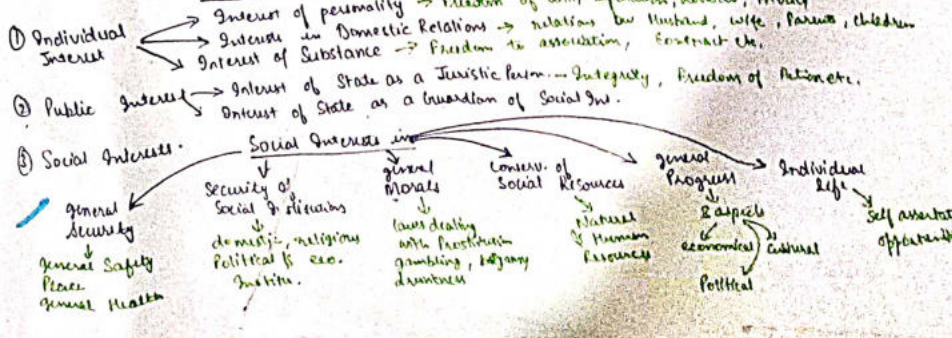 Interest of personality → Freedom of
① Individual Interest
Interests in Domestic Relations → relations b/w Husband, wife, Parents, Children
Interest of Substance → Freedom to association, Contract etc.
② Public Interest → Interest of State as a Juristic Person. - Integrity, Freedom of Action etc.
Interest of State as a Guardian of Social Int.
③ Social Interests.
Social Interests in
general Security
General Safety
Peace
General Health
Security of
Social Institutions
domestic, religious
Political & eco.
Institu.
general
Morals
laws dealing
with Prostitution
gambling, bigamy
drunkness
Conserv. of
Social Resources
Natural
& Human
Resources
general
Progress
3 aspects
economical
Cultural
Political
Individual
Life
Self assertat
opportuniti